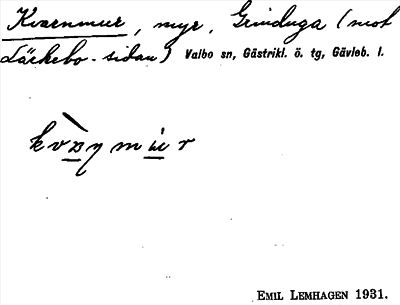 Kvarnmur, myr, Grinduga (mot
Läckebo-sidan) Valbo sn, Gästrikl. ö. tg, Gävleb. l.
EMIL LEMHAGEN 1931.